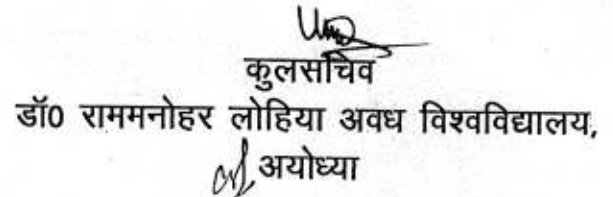 कुलसचिव
डॉ0 राममनोहर लोहिया अवध विश्वविद्यालय,
अयोध्या